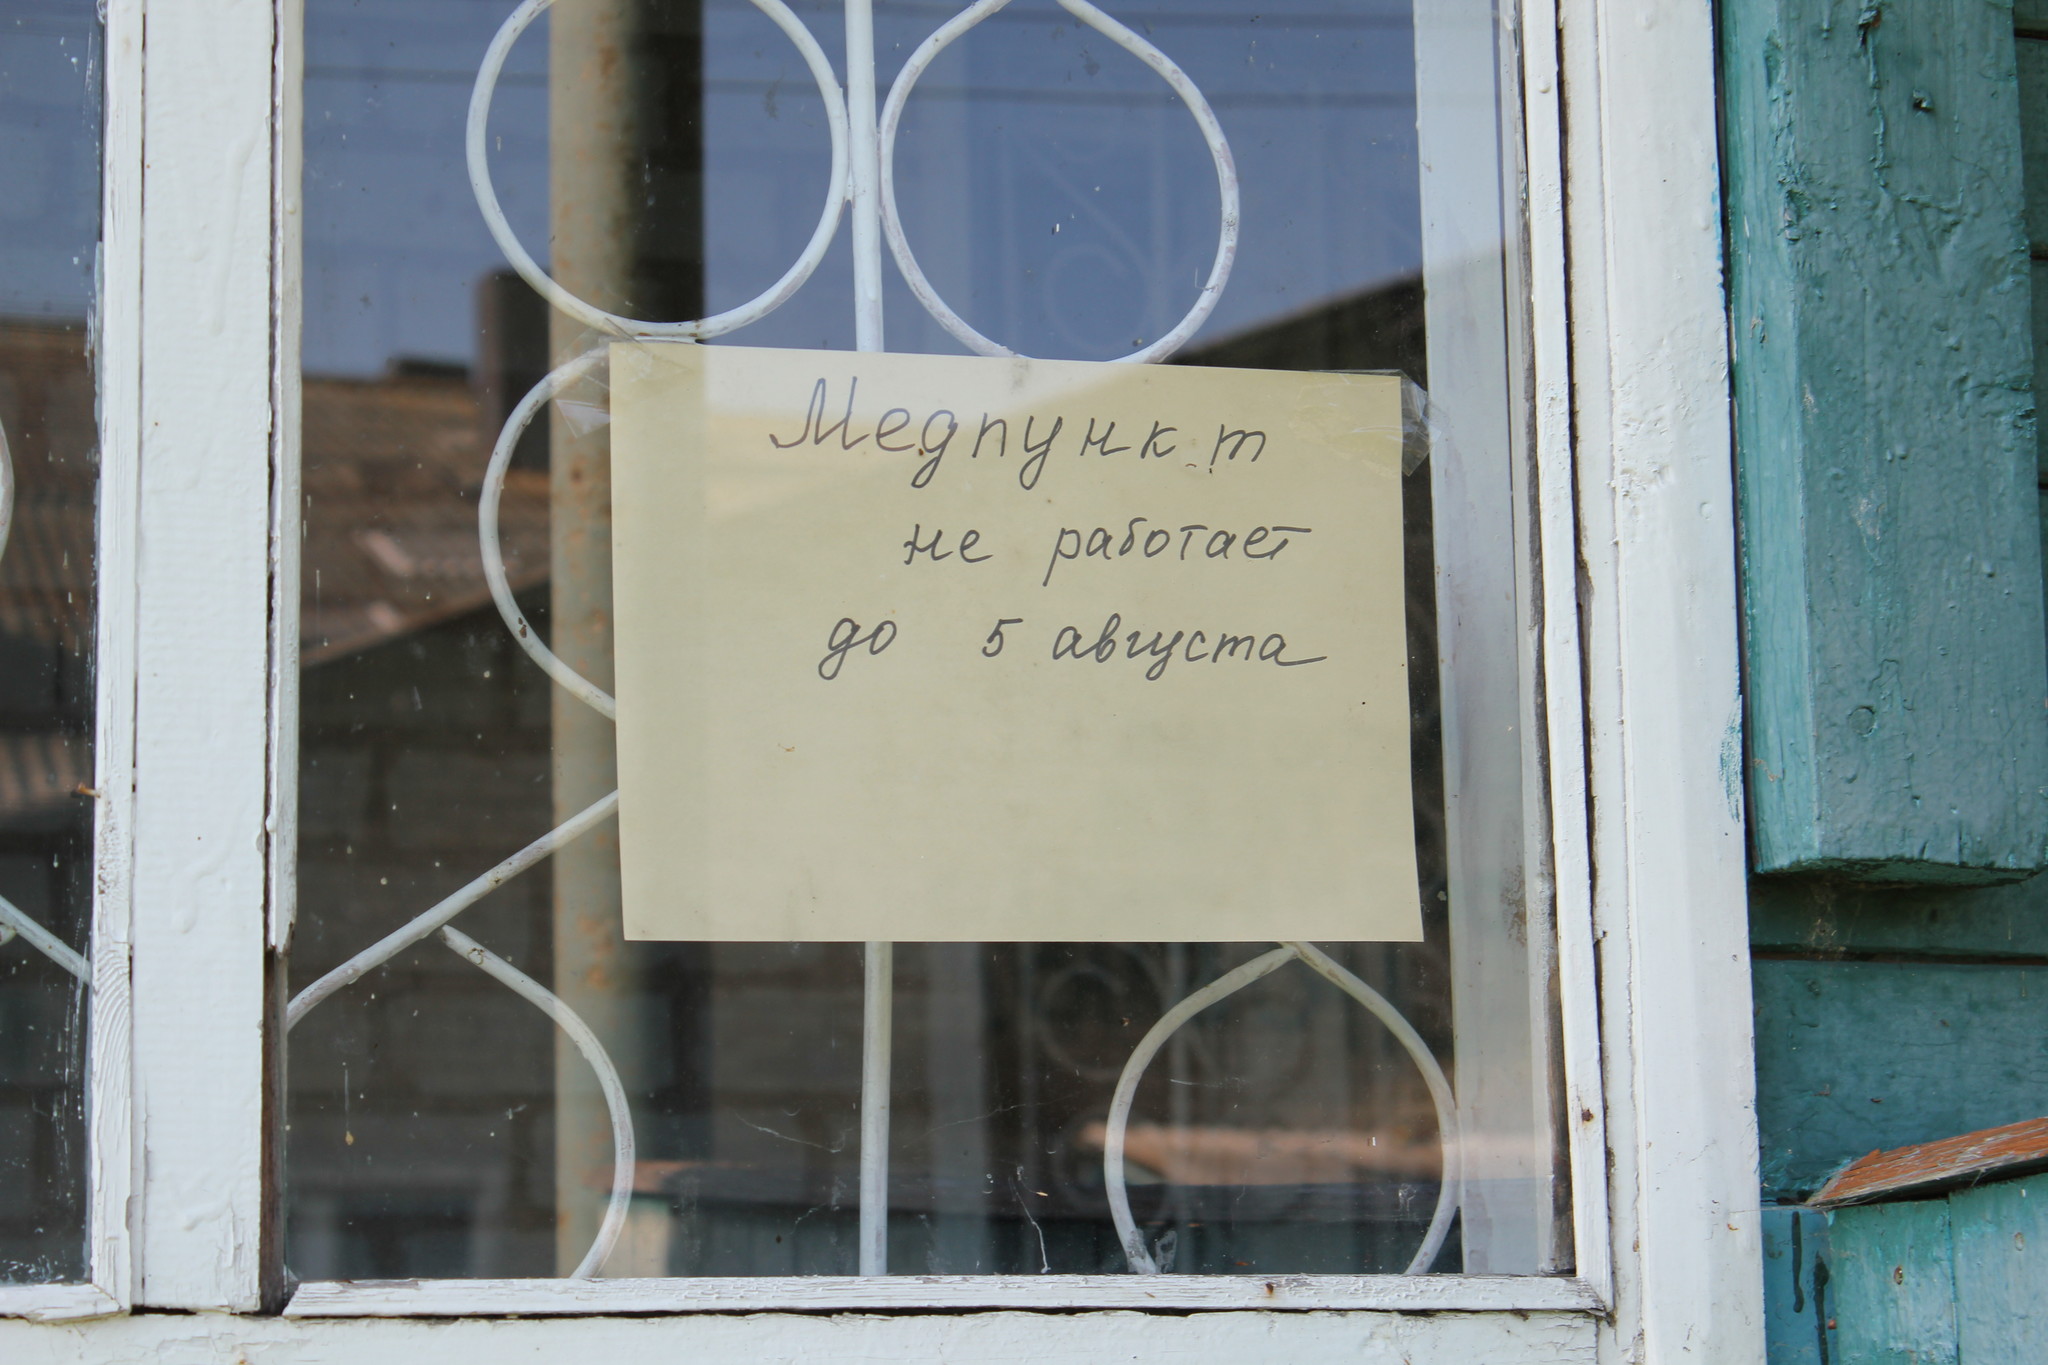 Медпункт
не работает
до 5 августа